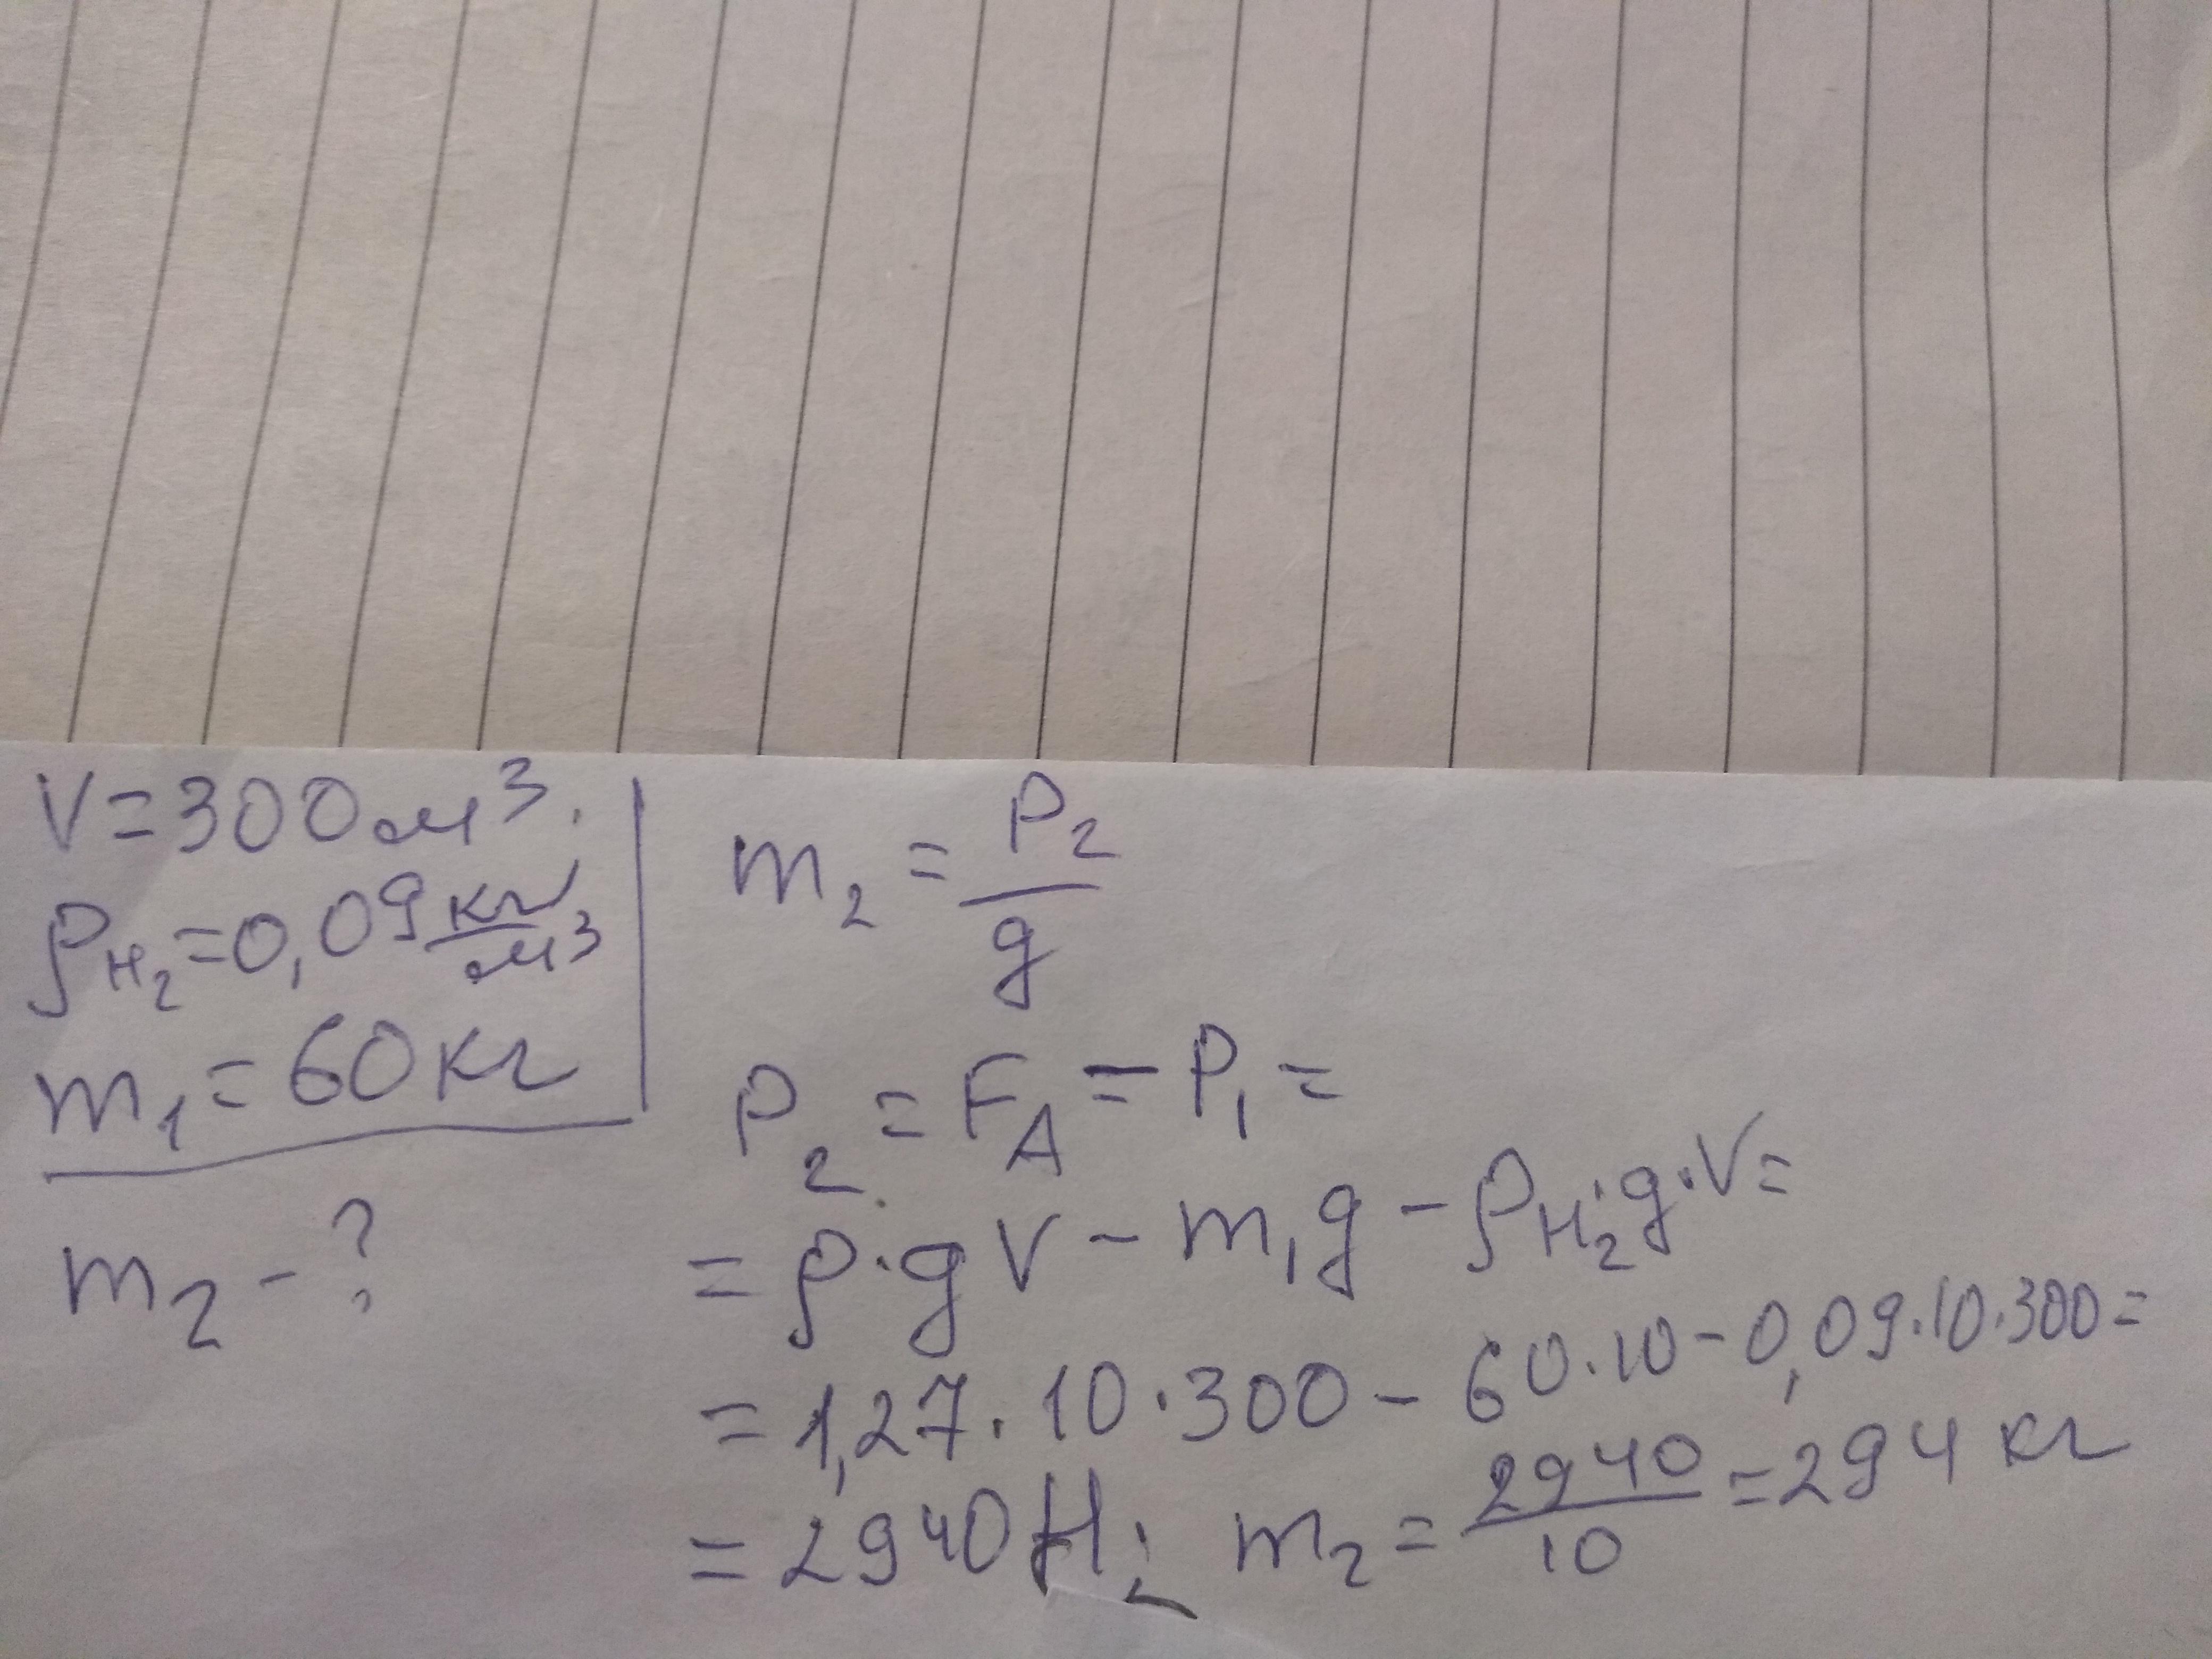 V=300м³.
ρH₂=0,09 кг/м³
m₁=60кг
m₂-?
m₂ = P₂/g
P₂ = FA = P₁ =
= ρ·gV - m₁g - ρH₂·g·V=
= 1,27·10·300 - 60·10 - 0,09·10·300=
= 2940 Н; m₂ = 2940/10 = 294 кг